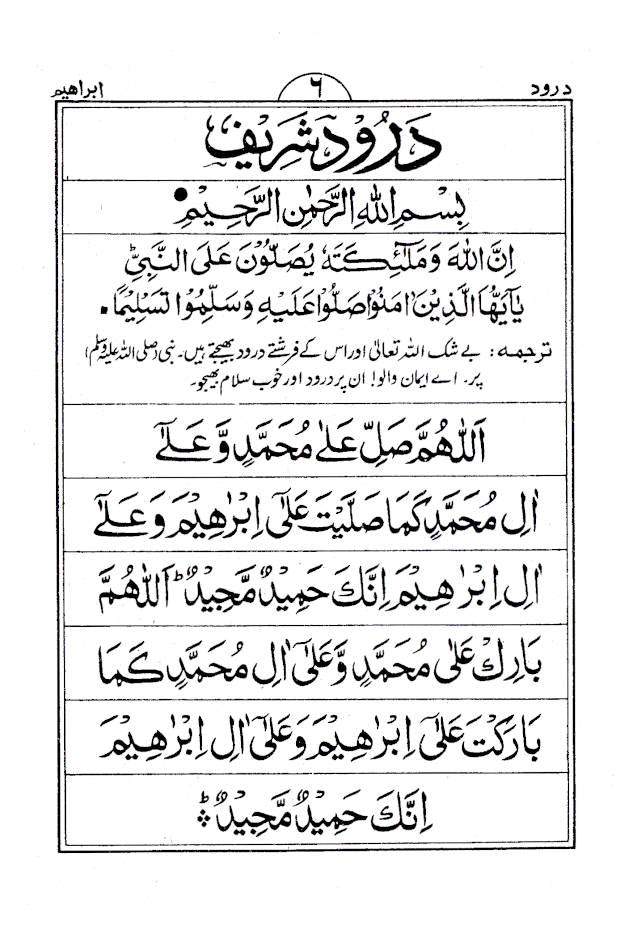 درود ۶ ابراھیم
دَرُوْدشَرِیْف
بِسْمِ اللّٰهِ الرَّحْمٰنِ الرَّحِيْمِ
اِنَّ اللّٰهَ وَمَلٰٓئِكَتَهٗ يُصَلُّوْنَ عَلَى النَّبِيِّ ؕ
يٰٓاَيُّهَا الَّذِيْنَ اٰمَنُوْا صَلُّوْا عَلَيْهِ وَسَلِّمُوْا تَسْلِيْمًا۔
ترجمہ: بے شک اللہ تعالیٰ اور اس کے فرشتے درود بھیجتے ہیں۔ نبی (صلی اللہ علیہ وسلم)
پر۔ اے ایمان والو! ان پر درود اور خوب سلام بھیجو۔
اَللّٰهُمَّ صَلِّ عَلٰى مُحَمَّدٍ وَّعَلٰٓى
اٰلِ مُحَمَّدٍ كَمَا صَلَّيْتَ عَلٰٓى اِبْرٰهِيْمَ وَعَلٰٓى
اٰلِ اِبْرٰهِيْمَ اِنَّكَ حَمِيْدٌ مَّجِيْدٌ ؕ اَللّٰهُمَّ
بَارِكْ عَلٰى مُحَمَّدٍ وَّعَلٰٓى اٰلِ مُحَمَّدٍ كَمَا
بَارَكْتَ عَلٰٓى اِبْرٰهِيْمَ وَعَلٰٓى اٰلِ اِبْرٰهِيْمَ
اِنَّكَ حَمِيْدٌ مَّجِيْدٌ ؕ